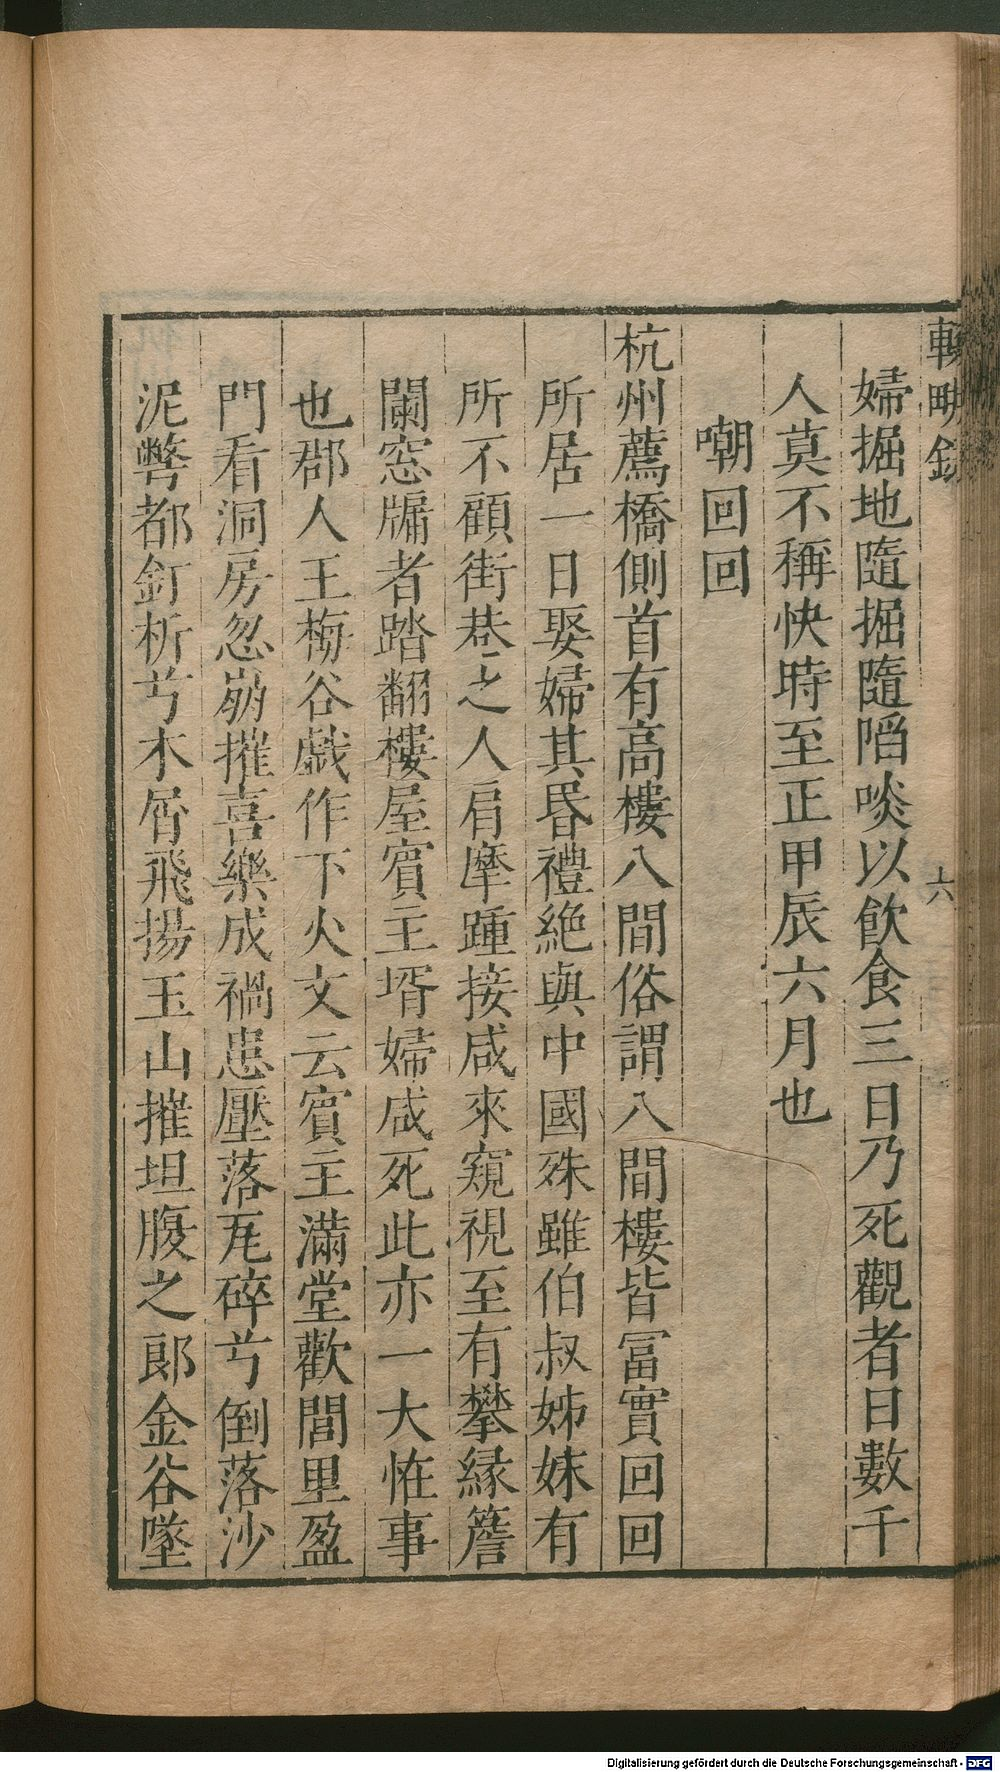 輟畊錄
六
婦掘地隨掘隨䧟啖以飲食三日乃死觀者日數千
人莫不稱快時至正甲辰六月也
嘲回回
杭州薦橋側首有高樓八間俗謂八間樓皆冨實回回
所居一日娶婦其昏禮絶與中國殊雖伯叔姊妹有
所不顧街巷之人肩摩踵接咸來窺視至有攀緣簷
闌窓牖者踏翻樓屋賔主壻婦咸死此亦一大恠事
也郡人王梅谷戯作下火文云賔主滿堂歡閭里盈
門看洞房忽崩摧喜樂成禍患壓落瓦碎兮倒落沙
泥彆都釘析兮木屑飛揚玉山摧坦腹之郎金谷墜
Digitalisierung gefördert durch die Deutsche Forschungsgemeinschaft - DFG